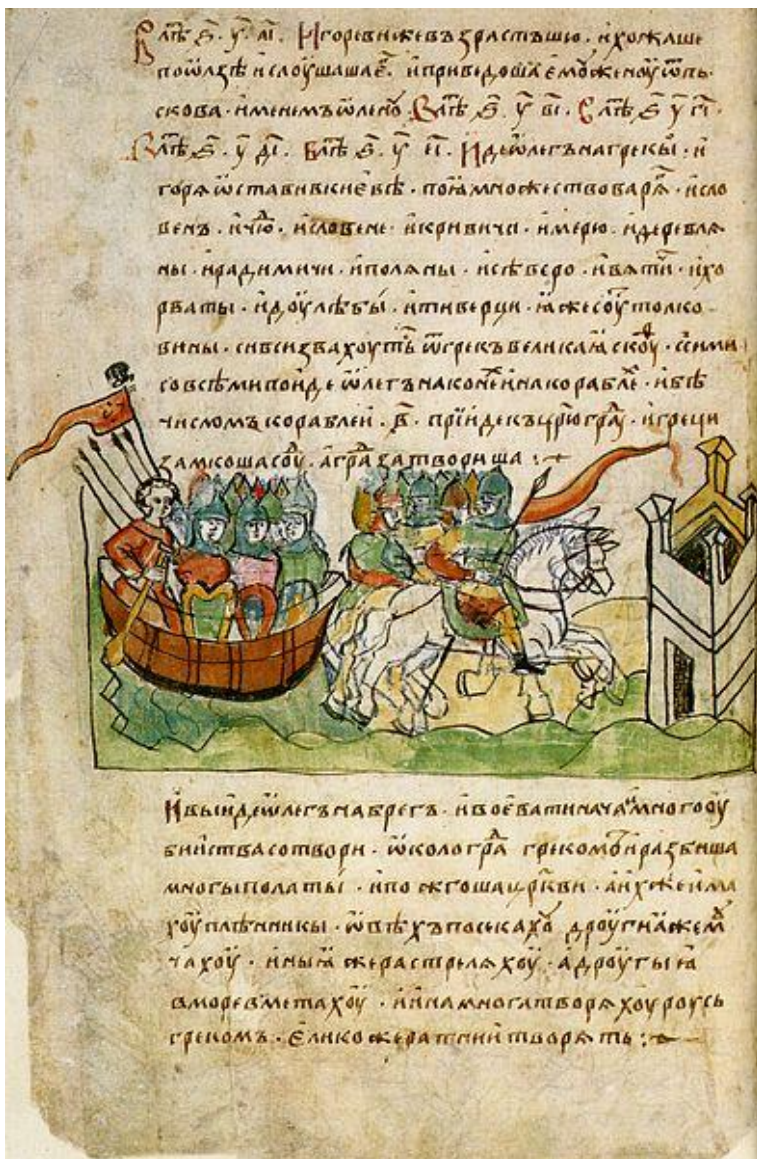 В лѣⷮ ҂ѕ҃. у҃. аі҃. Игореви же възрастъшю. и хожаше
по ѡлзѣ и слоушаша еⷢ. и приведоша емоу женоу ѿ пь
скова. именемъ ѡленоу В лѣⷮ ҂ѕ҃. у҃ ві҃. В лѣⷮ ҂ѕ҃ у҃ гі҃.
В лѣⷮ ҂ѕ҃. у҃ ді҃. В лѣⷮ ҂ѕ҃. у҃ еі҃. Иде ѡлегъ на грекы. и
горѧ ѡставив киевѣ. поꙗ множество варѧⷢ. и сло
венъ. и чюⷣ. и словене. и кривичи. и мерю. и деревлѧ
ны. и радимичи. и полѧны. и сѣверо. и вѧтичи. и хо
рваты. и доулѣбы. и тиверци. ꙗже соуть толко
вины. си вси звахоуть ѿ грекъ великаꙗ скоуⷴ. с сими
со всѣми поиде ѡлегъ на конеⷯ и на кораблеⷯ. и бѣ
числомъ кораблеи. ҂в҃. прїиде къ цр҃юграⷣу. и греци
замкоша соуⷣ. а граⷣ затвориша :~
И выиде ѡлегъ на брегъ. и воевати нача и много оу
биства сотвори. ѡколо граⷣ грекомъ и разбиша
многы полаты. и пожгоша цр҃кви. а ихже има
хоу плѣнникы. ѡвѣхъ посекахоу дроугиꙗ же моуⷱ
чахоу. иныꙗ же растрелѧхоу. а дроугыꙗ
в море вметахоу. и ина многа творѧхоу роусь
грекомъ. елико же ратнии творѧть :~